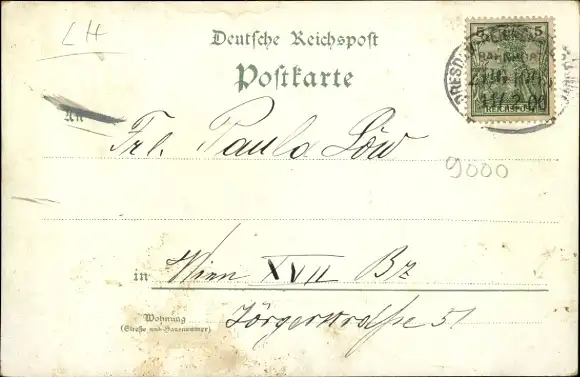 LH
Deutsche Reichspost
Postkarte
5 5
DRESDEN
11/2.00
An
Frl. Paula Löw
9000
in Wien XVII Bz
Wohnung
(Straße und Hausnummer)
Jörgerstraße 51